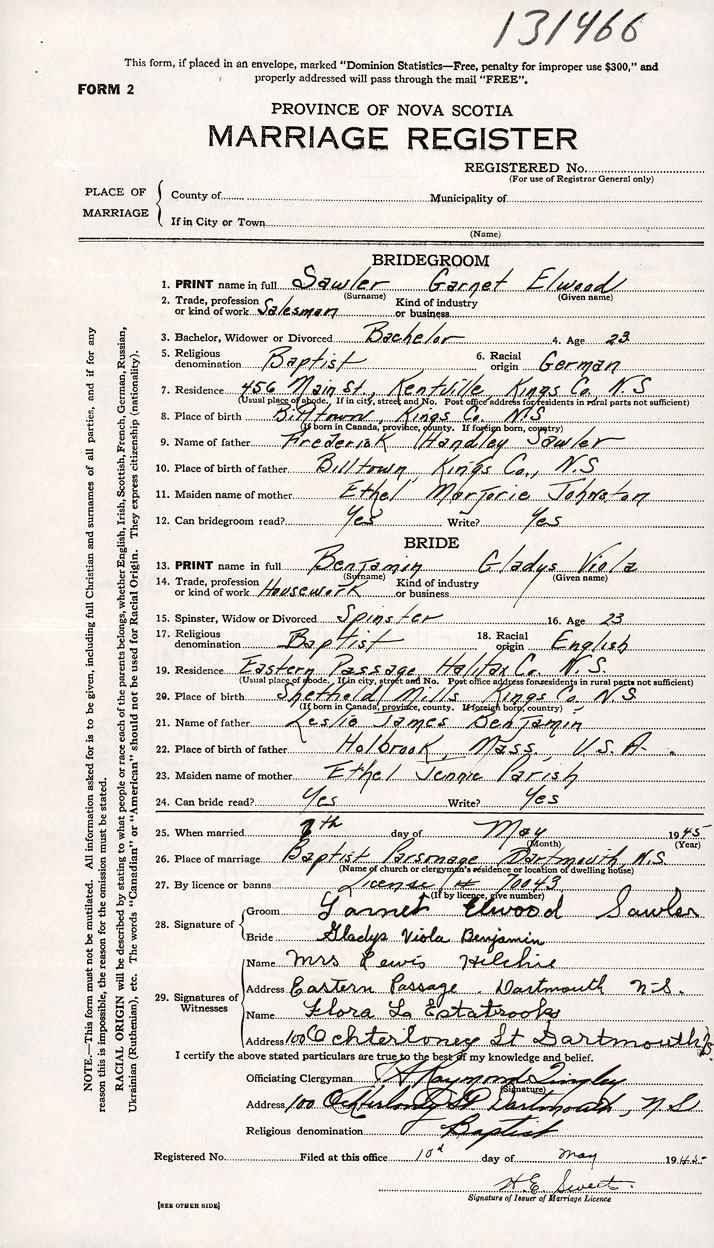 131466
This form, if placed in an envelope, marked "Dominion Statistics—Free, penalty for improper use $300," and
properly addressed will pass through the mail "FREE".
FORM 2
PROVINCE OF NOVA SCOTIA
MARRIAGE REGISTER
REGISTERED No.
(For use of Registrar General only)
PLACE OF MARRIAGE
County of Municipality of
If in City or Town
(Name)
BRIDEGROOM
1. PRINT name in full Sawler Garnet Elwood
(Surname) (Given name)
2. Trade, profession or kind of work Salesman Kind of industry or business
3. Bachelor, Widower or Divorced Bachelor 4. Age 23
5. Religious denomination Baptist 6. Racial origin German
7. Residence 456 Main St., Kentville, Kings Co. N S
(Usual place of abode. If in city, street and No. Post office address for residents in rural parts not sufficient)
8. Place of birth Billtown, Kings Co. N.S
(If born in Canada, province, county. If foreign born, country)
9. Name of father Frederick Handley Sawler
10. Place of birth of father Billtown, Kings Co., N.S
11. Maiden name of mother Ethel Marjorie Johnston
12. Can bridegroom read? Yes Write? Yes
BRIDE
13. PRINT name in full Benjamin Gladys Viola
(Surname) (Given name)
14. Trade, profession or kind of work Housework Kind of industry or business
15. Spinster, Widow or Divorced Spinster 16. Age 23
17. Religious denomination Baptist 18. Racial origin English
19. Residence Eastern Passage Halifax Co. N.S.
(Usual place of abode. If in city, street and No. Post office address for residents in rural parts not sufficient)
20. Place of birth Sheffield Mills Kings Co. N S
(If born in Canada, province, county. If foreign born, country)
21. Name of father Leslie James Benjamin
22. Place of birth of father Holbrook, Mass, U.S.A.
23. Maiden name of mother Ethel Jennie Parish
24. Can bride read? Yes Write? Yes
25. When married 7th day of May 1945
(Month) (Year)
26. Place of marriage Baptist Parsonage Dartmouth, N.S.
(Name of church or clergyman's residence or location of dwelling house)
27. By licence or banns License # 70043
(If by licence, give number)
28. Signature of
Groom Garnet Elwood Sawler
Bride Gladys Viola Benjamin
29. Signatures of Witnesses
Name Mrs Lewis Hilchie
Address Eastern Passage. Dartmouth N-S.
Name Flora L. Estabrooks
Address 100 Ochterloney St Dartmouth
I certify the above stated particulars are true to the best of my knowledge and belief.
Officiating Clergyman Raymond Tingley
(Signature)
Address 100 Ochterloney St Dartmouth, N S
Religious denomination Baptist
Registered No. Filed at this office 10th day of May 1945
H. E. Sweet
Signature of Issuer of Marriage Licence
[SEE OTHER SIDE]
NOTE.—This form must not be mutilated. All information asked for is to be given, including full Christian and surnames of all parties, and if for any
reason this is impossible, the reason for the omission must be stated.
RACIAL ORIGIN will be described by stating to what people or race each of the parents belongs, whether English, Irish, Scottish, French, German, Russian,
Ukrainian (Ruthenian), etc. The words "Canadian" or "American" should not be used for Racial Origin. They express citizenship (nationality).